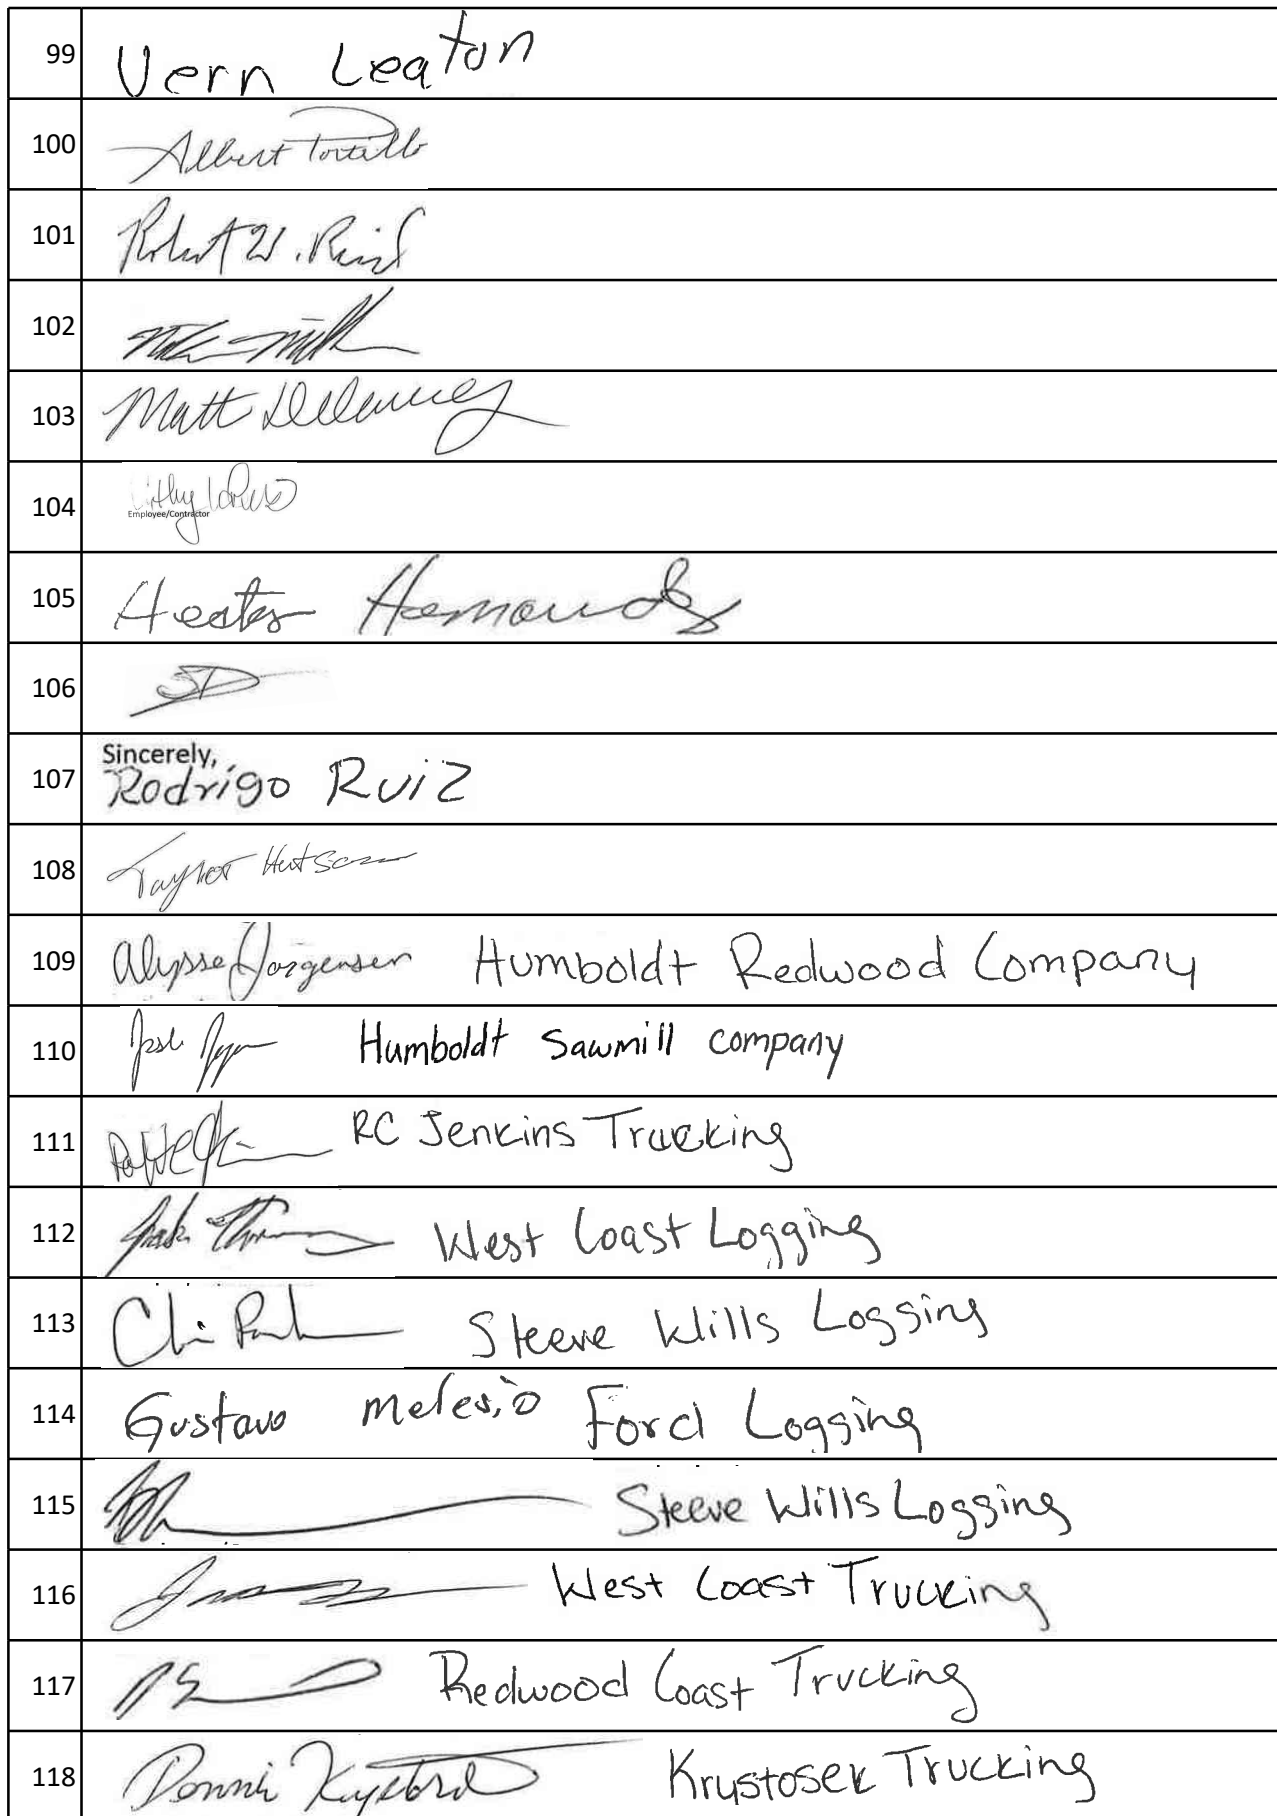 99 Vern Leaton
100 Albert Portillo
101 Robert W. Reid
102
103 Matt Delaney
104
Employee/Contractor
105 Hector Hernandez
106 SD
Sincerely,
107 Rodrigo Ruiz
108 Taylor Hutson
109 Alysse Jorgensen Humboldt Redwood Company
110 Humboldt Sawmill company
111 RC Jenkins Trucking
112 West Coast Logging
113 Steeve Wills Logging
114 Gustavo melesio Ford Logging
115 Steeve Wills Logging
116 West Coast Trucking
117 Redwood Coast Trucking
118 Donnie Krustosek Trucking